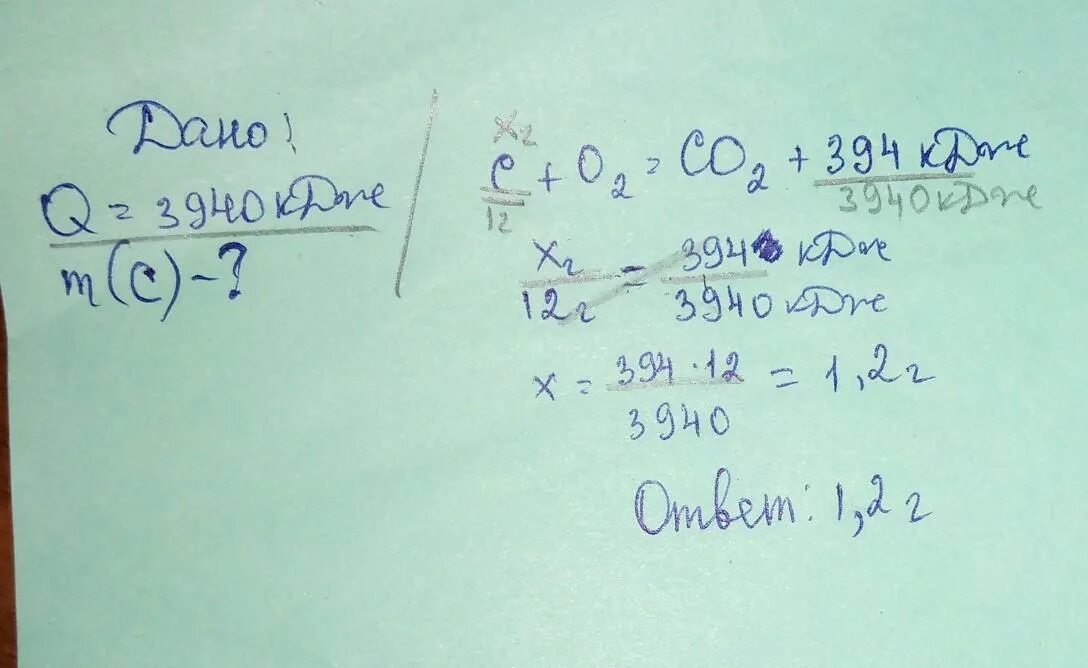 Дано!
Q = 3940 кДж
m(C) - ?
xг
C + O₂ = CO₂ + 394 кДж
12
3940 кДж
xг / 12г = 394 кДж / 3940 кДж
x = 394 · 12 / 3940 = 1,2 г
Ответ: 1,2 г